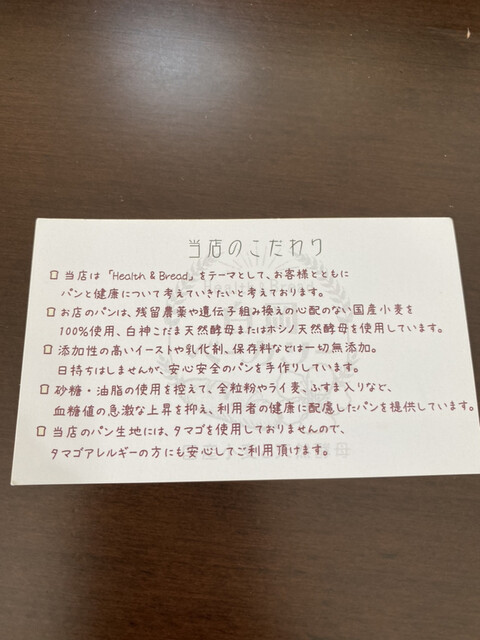 当店のこだわり
当店は「Health & Bread」をテーマとして、お客様とともに
パンと健康について考えていきたいと考えております。
お店のパンは、残留農薬や遺伝子組み換えの心配のない国産小麦を
100%使用、白神こだま天然酵母またはホシノ天然酵母を使用しています。
添加性の高いイーストや乳化剤、保存料などは一切無添加。
日持ちはしませんが、安心安全のパンを手作りしています。
砂糖・油脂の使用を控えて、全粒粉やライ麦、ふすま入りなど、
血糖値の急激な上昇を抑え、利用者の健康に配慮したパンを提供しています。
当店のパン生地には、タマゴを使用しておりませんので、
タマゴアレルギーの方にも安心してご利用頂けます。